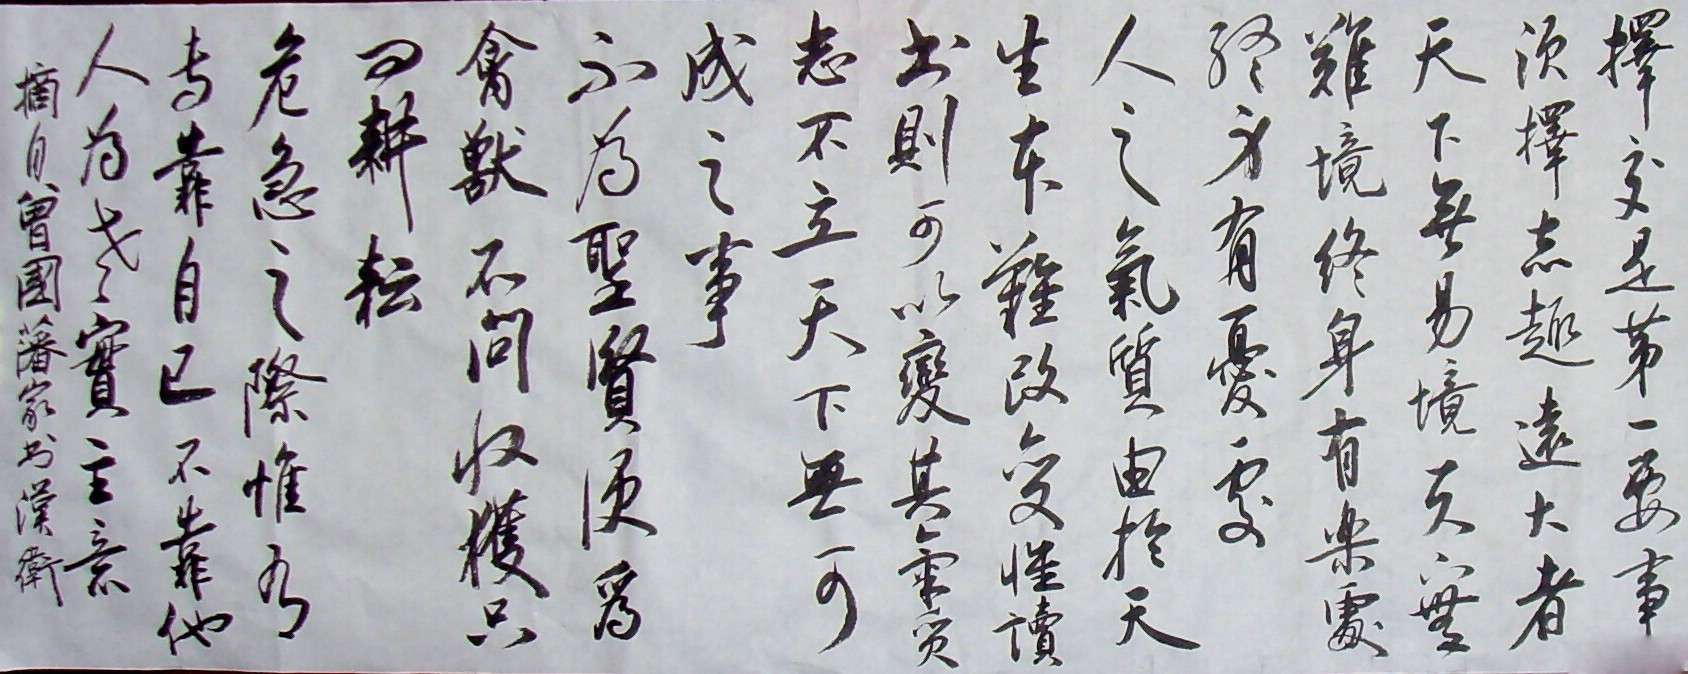 擇交是第一要事
須擇志趣遠大者
天下無易境天下無
難境終身有楽處
終身有憂處
人之氣質由於天
生本難改變惟讀
書則可以變其氣質
志不立天下無可
成之事
不為聖賢便爲
禽獸不問收穫只
問耕耘
危急之際惟有
專靠自己不靠他
人為老々實主意
摘自曾國藩家书漢衛